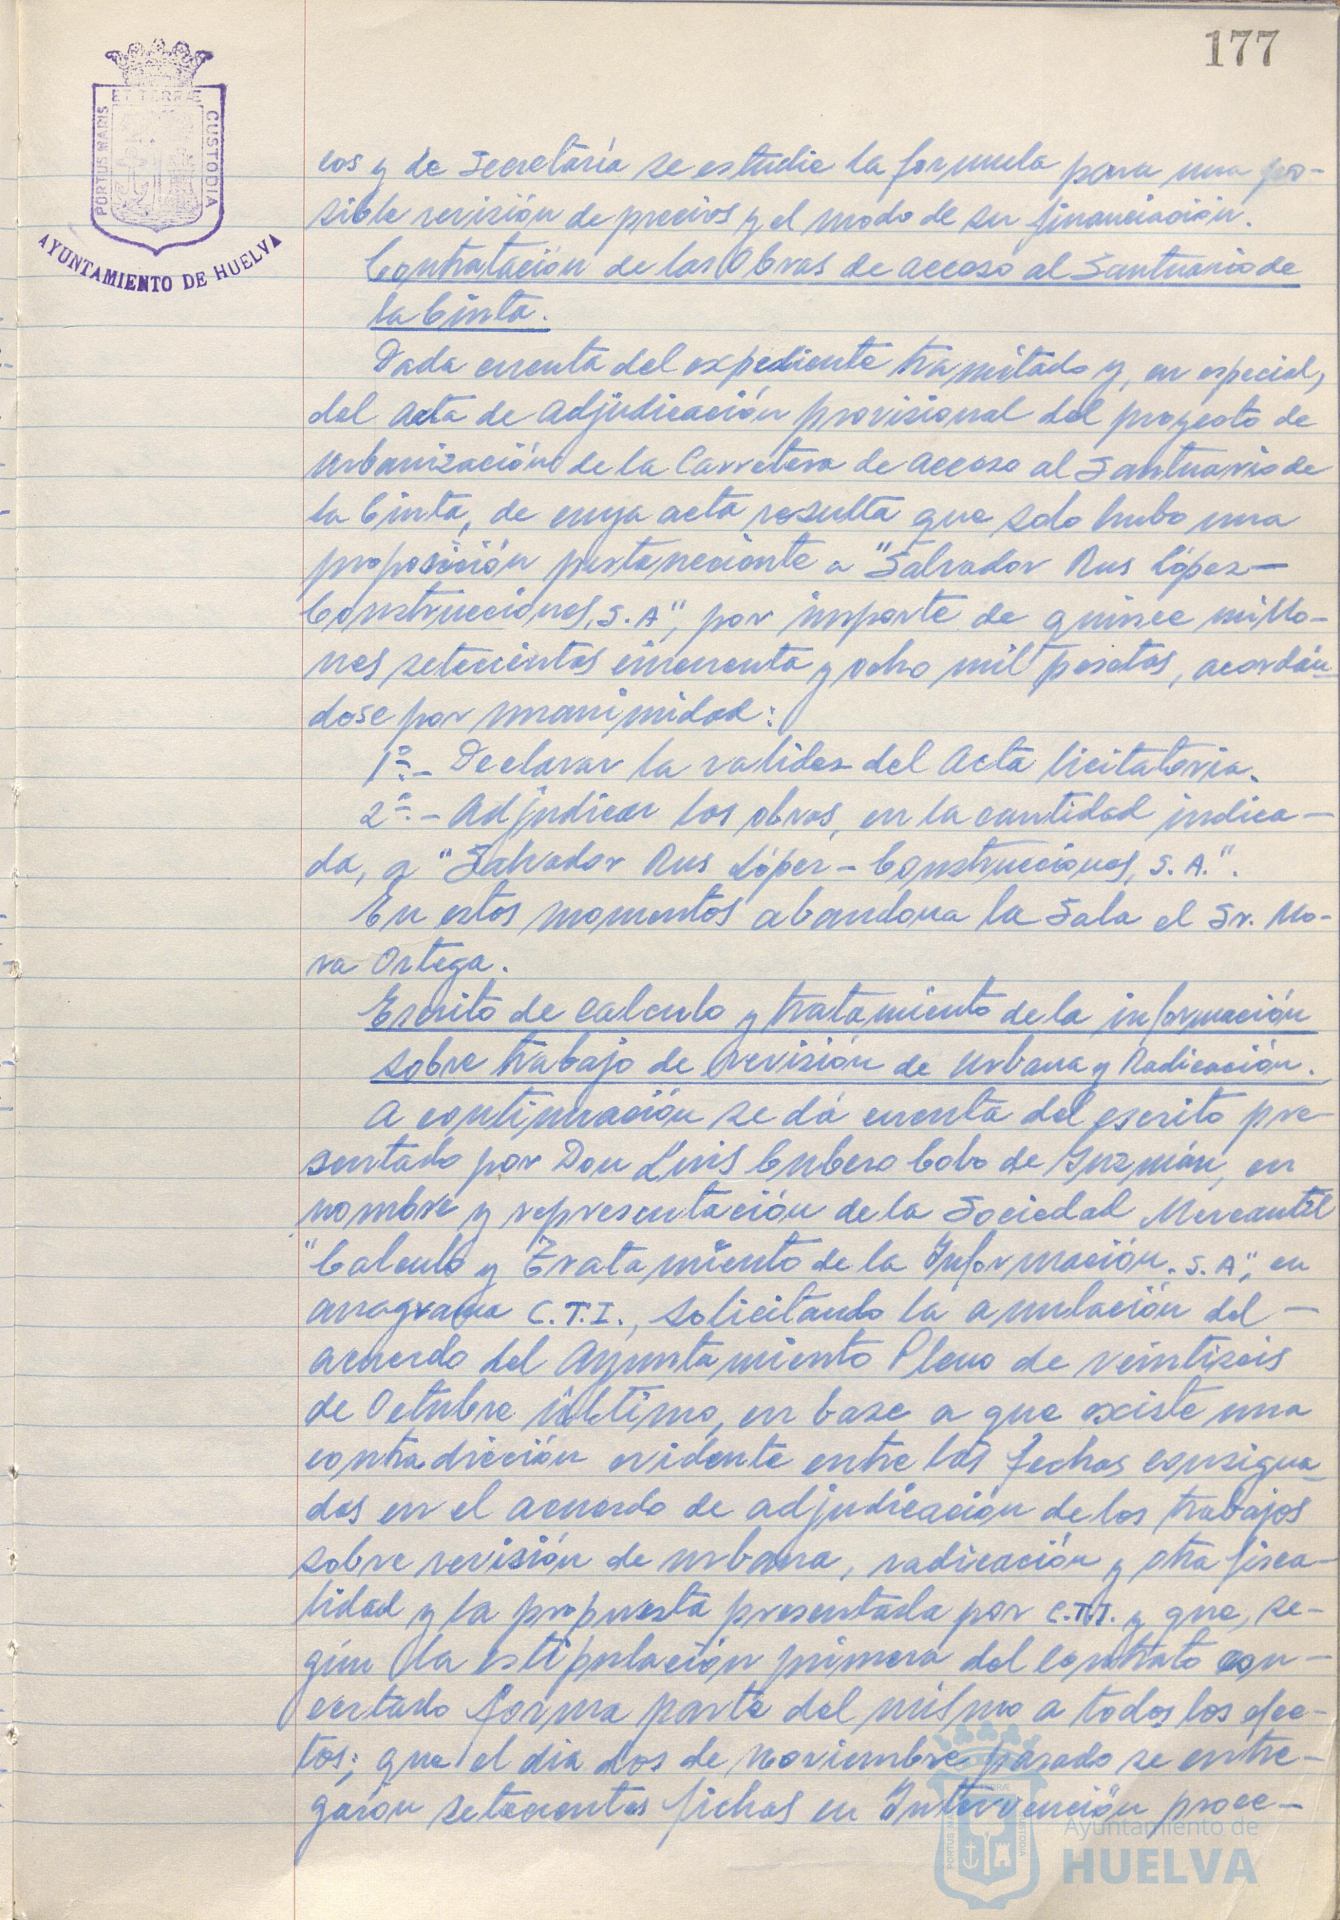 177
PORTUS MARIS ET TERRÆ CUSTODIA
AYUNTAMIENTO DE HUELVA
cos y de Secretaría se estudie la formula para una po-
sible revisión de precios y el modo de su financiación.
Contratación de las Obras de acceso al Santuario de
la Cinta.
Dada cuenta del expediente tramitado y, en especial,
del Acta de Adjudicación provisional del proyecto de
urbanización de la Carretera de acceso al Santuario de
la Cinta, de cuya acta resulta que solo hubo una
proposición perteneciente a "Salvador Rus López-
Construcciones, S.A", por importe de quince millo-
nes setecientas cincuenta y ocho mil pesetas, acordán-
dose por unanimidad:
1º.- Declarar la validez del Acta licitatoria.
2º.- Adjudicar las obras, en la cantidad indica-
da, a "Salvador Rus López-Construcciones, S.A.".
En estos momentos abandona la Sala el Sr. Mo-
ra Ortega.
Escrito de Calculo y tratamiento de la información
sobre trabajo de revisión de Urbana y Radicación.
A continuación se dá cuenta del escrito pre-
sentado por Don Luis Cubero Cobo de Guzmán, en
nombre y representación de la Sociedad Mercantil
"Calculo y Tratamiento de la Información. S.A", en
anagrama C.T.I., solicitando la anulación del
acuerdo del Ayuntamiento Pleno de veintiseis
de Octubre último, en base a que existe una
contradicción evidente entre las fechas consigna-
das en el acuerdo de adjudicación de los trabajos
sobre revisión de urbana, radicación y otra fisca-
lidad y la propuesta presentada por C.T.I. y que, se-
gún la estipulación primera del contrato con-
certado forma parte del mismo a todos los efec-
tos; que el dia dos de Noviembre pasado se entre-
garon setecientas fichas en Intervención proce-
Ayuntamiento de
HUELVA